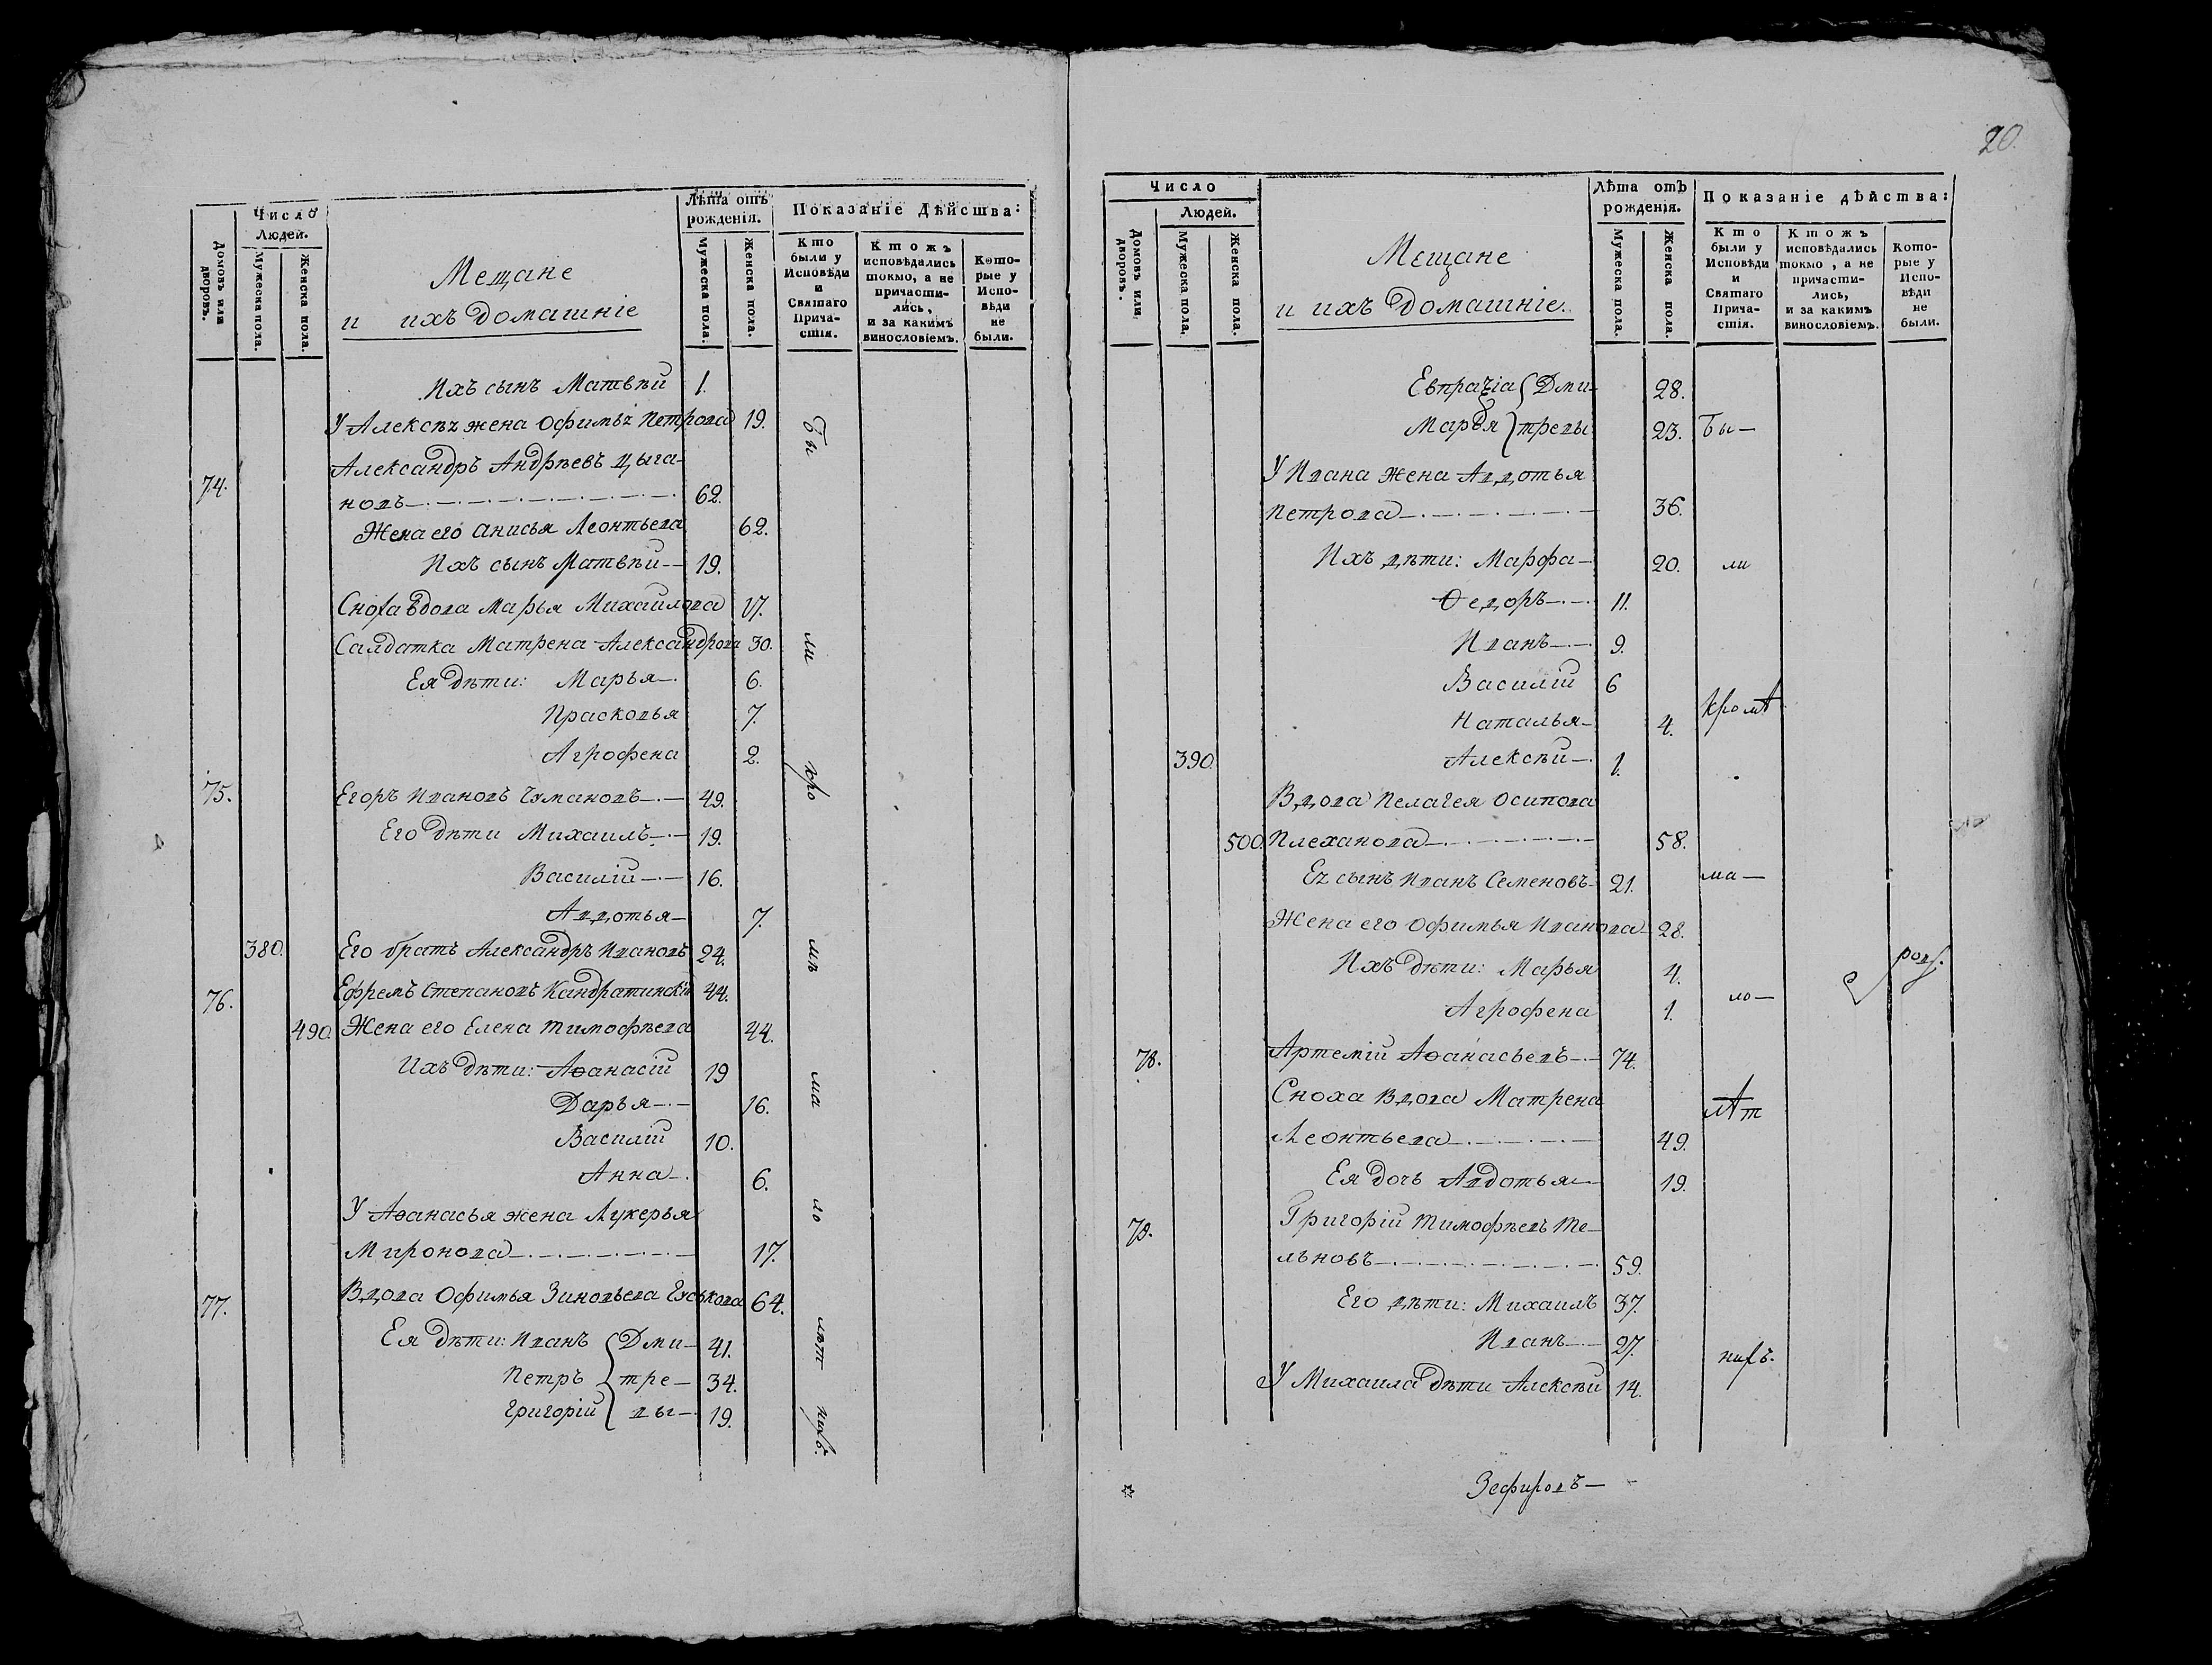 Число
Людей.
Домовъ или дворовъ.
Мужеска пола.
Женска пола.
Мещане
и ихъ домашніе
Лѣта отъ рожденія.
Мужеска пола.
Женска пола.
Показаніе Дѣйства:
Кто были у Исповѣди и Святаго Прича-стія.
Ктожъ исповѣдались токмо, а не причасти-лись, и за какимъ винословіемъ.
Кото-рые у Испо-вѣди не были.
Ихъ сынъ Матвѣй 1.
У Алексѣя жена Офимья Петрова 19.
Бы
Александръ Андрѣевъ Цыга-
74. новъ 62.
Жена его Анисья Леонтьева 62.
Ихъ сынъ Матвѣй 19.
Сноха вдова Марья Михайлова 17.
Салдатка Матрена Александрова 30.
ли
Ея дѣти: Марья 6.
Прасковья 7.
Агрофена 2.
кро
75. Егоръ Ивановъ Чумановъ 49.
Его дѣти Михаилъ 19.
Василій 16.
Авдотья 7.
380. Его братъ Александръ Ивановъ 24.
мѣ
76. Ефремъ Степановъ Кандратинскій 44.
490. Жена его Елена Тимофѣева 44.
Ихъ дѣти: Аѳанасій 19
ма
Дарья 16.
Василій 10.
Анна 6.
У Аѳанасья жена Лукерья
ло
Миронова 17.
77. Вдова Офимья Зиновьева 64.
Ея дѣти: Иванъ Дми- 41.
лѣт
Петръ тре- 34.
Григорій вы 19.
нихъ.
20.
Число
Людей.
Домовъ или дворовъ.
Мужеска пола.
Женска пола.
Мещане
и ихъ домашніе.
Лѣта отъ рожденія.
Мужеска пола.
Женска пола.
Показаніе дѣйства:
Кто были у Исповѣди и Святаго Прича-стія.
Ктожъ исповѣдались токмо, а не причасти-лись, и за какимъ винословіемъ.
Кото-рые у Испо-вѣди не были.
Евпраѯіа Дми- 28.
Марья тревы 23. Бы-
У Ивана жена Авдотья
Петрова 36.
Ихъ дѣти: Марфа 20. ли
Ѳедоръ 11.
Иванъ 9.
Василій 6
Наталья 4. кромѣ
390. Алексѣй 1.
Вдова Пелагея Осипова
500. Плеханова 58.
Ея сынъ Иванъ Семеновъ 21. ма-
Жена его Офимья Иванова 28.
Ихъ дѣти: Марья 4.
Агрофена 1. ло-
78. Артемій Аѳанасьевъ 74.
Сноха Вдова Матрена
лѣт
Леонтьева 49.
Ея дочь Авдотья 19.
79. Григорій Тимофѣевъ Ме-
льновъ 59.
Его дѣти: Михаилъ 37.
Иванъ 27.
нихъ.
У Михаила дѣти Алексѣй 14.
Зефировъ